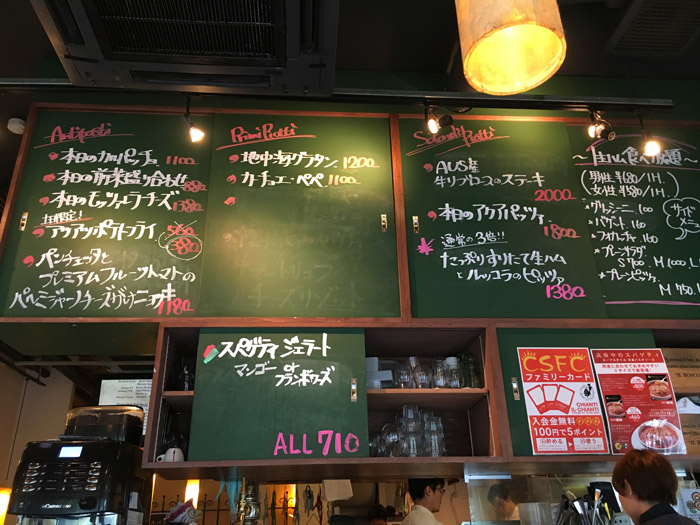 Antipasti
本日のカルパッチョ 1100
本日の前菜盛り合わせ
本日のモッツァレラチーズ 1380
土日限定!
アツアツポテトフライ 580
380
パンチェッタと
プレミアムフルーツトマトの
ペペミジャーノチーズグリルニョッキ 1180
Primi Piatti
地中海グラタン 1200
カーチョ・エ・ペペ 1100
Secondi Piatti
AUS産
牛リブロースのステーキ
2000
本日のアクアパッツァ
1800
通常の3倍!!
たっぷりすりたて生ハム
とルッコラのピッツァ
1380
〜生ハム食べ放題〜
(男性 ¥680/1H)
(女性 ¥580/1H)
グリッシーニ 100
バゲット 100
フォカッチャ 100
プレーンサラダ
S 700 M 100
プレーンピッツァ
M 450
サイドメニュー
スパゲティジェラート
マンゴー or フランボワーズ
ALL 710
CSFC
ファミリーカード
CHIANTI
CHIANTI
入会金無料
100円で5ポイント
貯める
使う
真夜中のスパゲティ